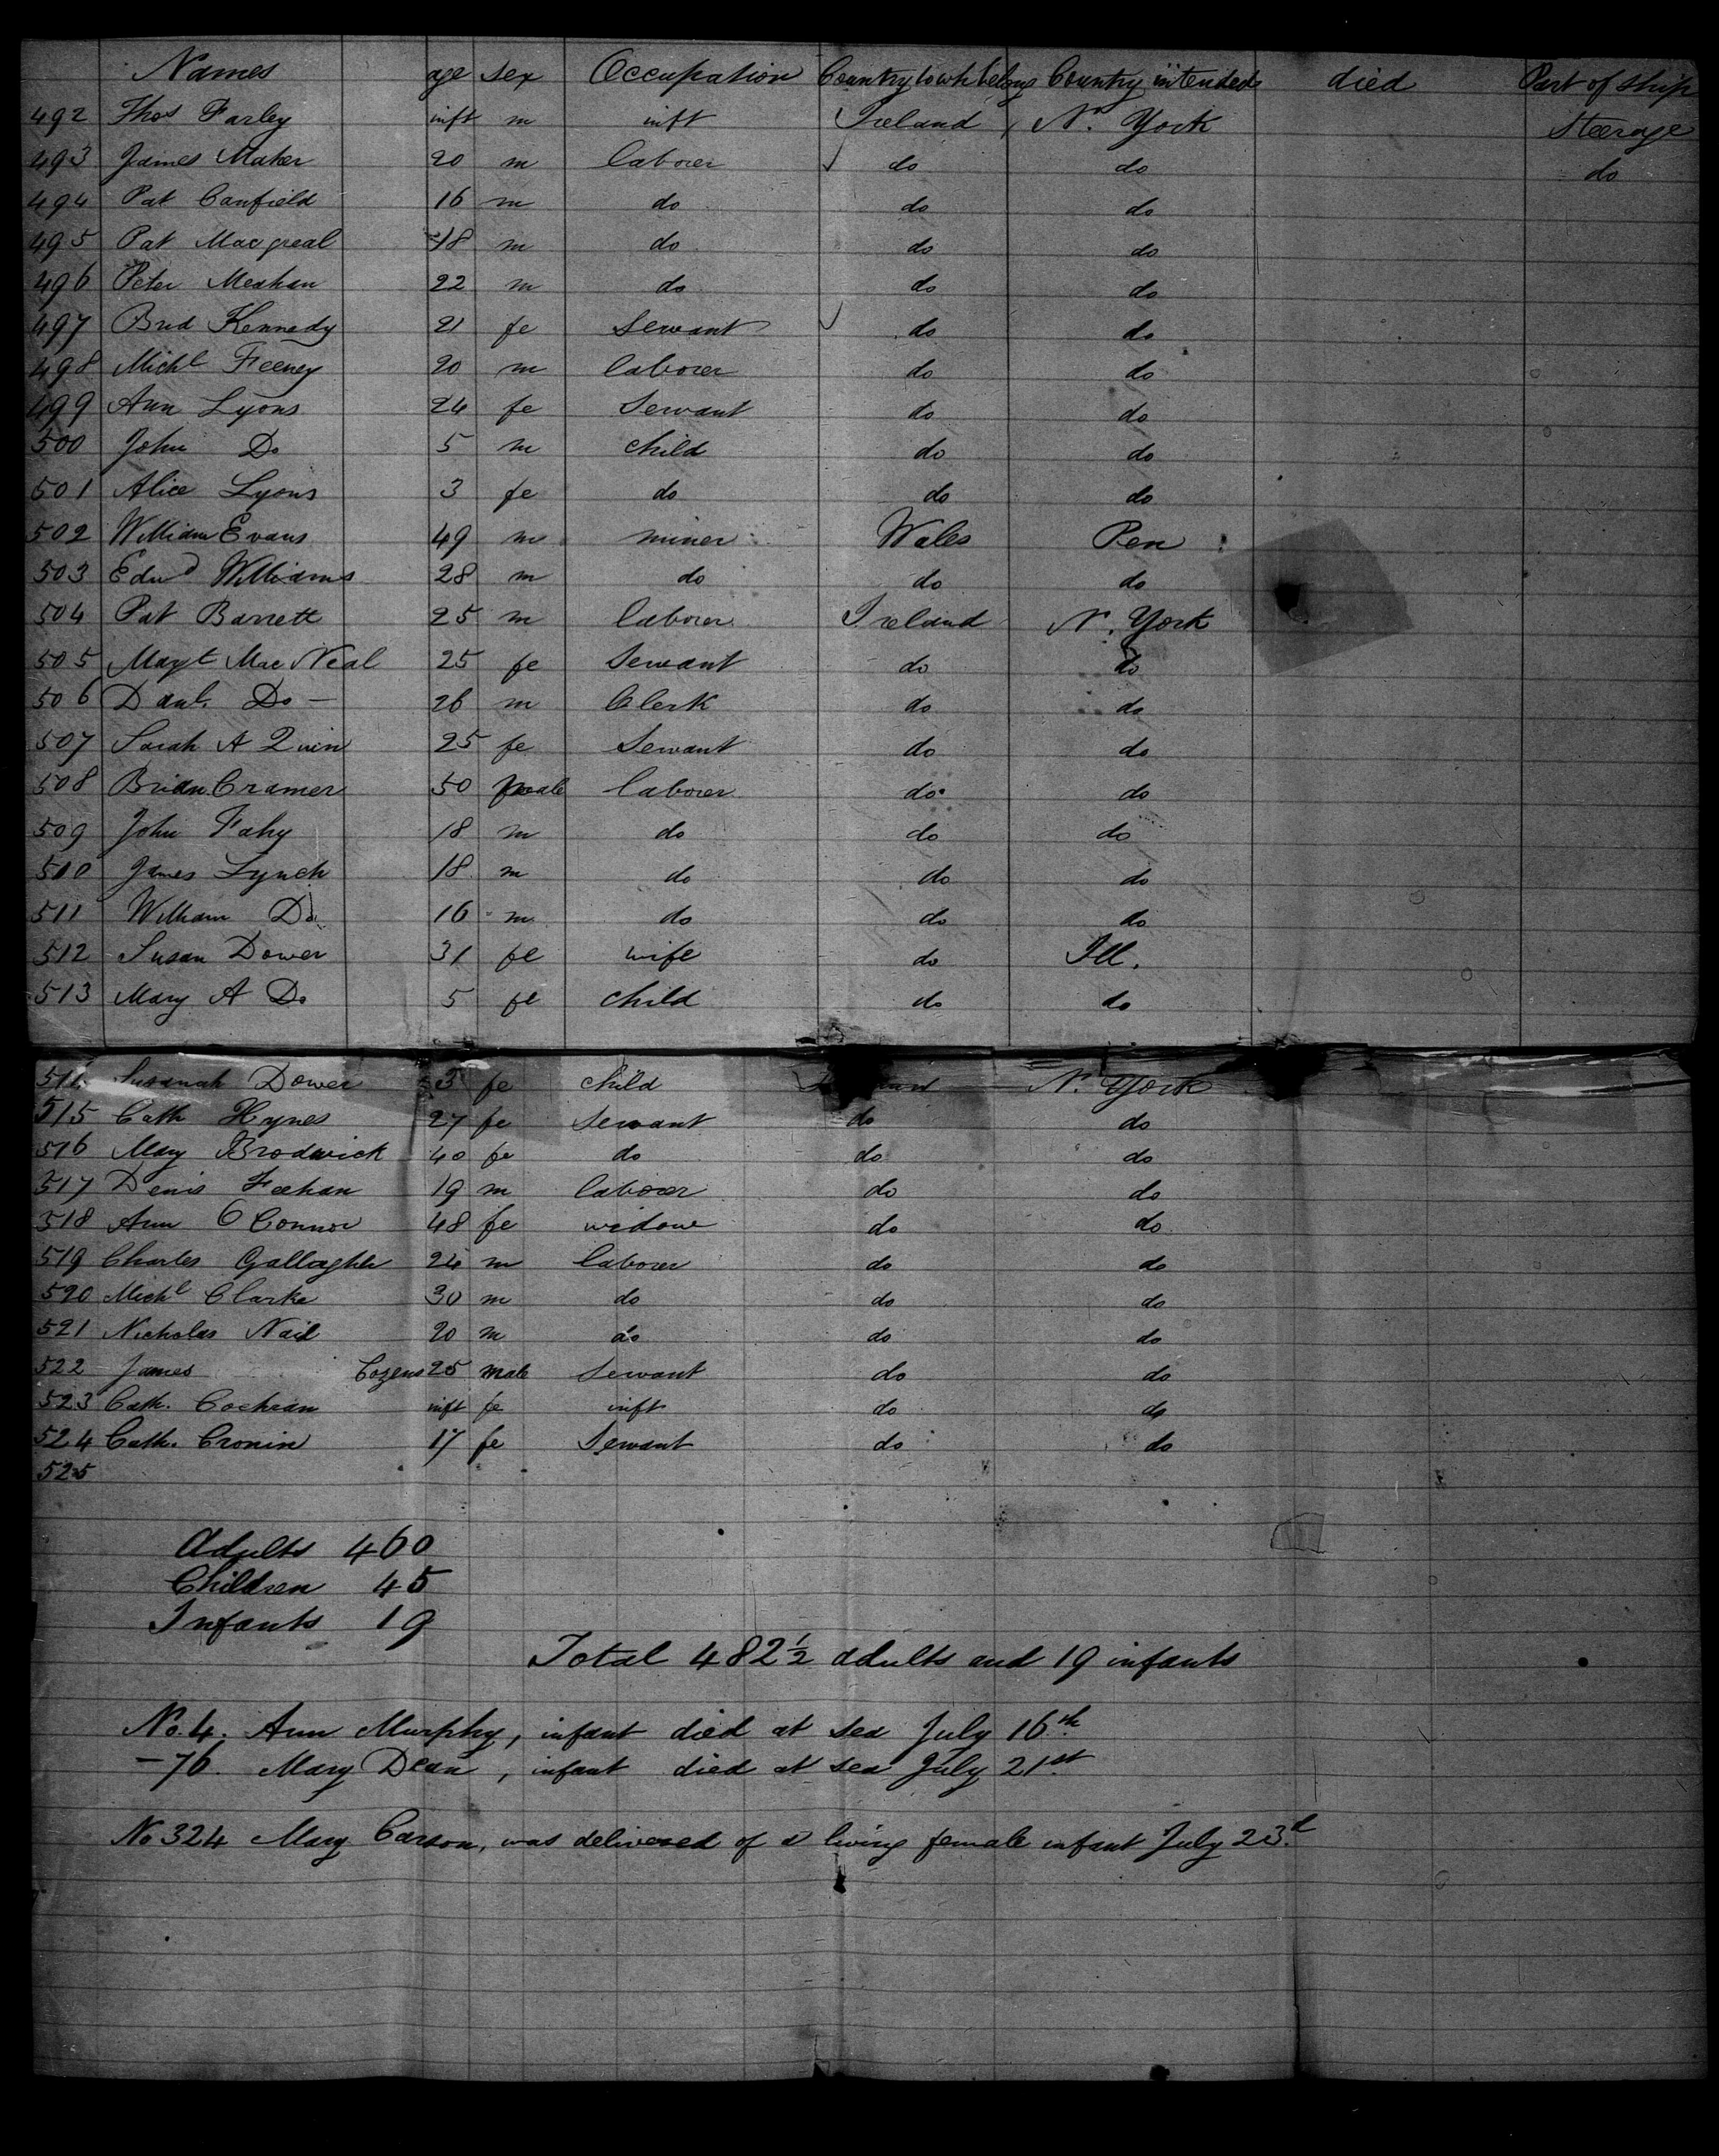 Names age sex Occupation Country to wh belong Country intended died Part of ship
492 Thos Farley inft m inft Ireland N. York Steerage
493 James Maher 20 m laborer do do do
494 Pat Canfield 16 m do do do
495 Pat Macgreal 18 m do do do
496 Peter Meahan 22 m do do do
497 Brid Kennedy 21 fe Servant do do
498 Michl Feeney 20 m laborer do do
499 Ann Lyons 24 fe Servant do do
500 John Do 5 m child do do
501 Alice Lyons 3 fe do do do
502 William Evans 49 m miner Wales Pen
503 Edwd Williams 28 m do do do
504 Pat Barrett 25 m laborer Ireland N. York
505 Margt Mac Neal 25 fe Servant do do
506 Danl. Do — 26 m Clerk do do
507 Sarah A Quin 25 fe Servant do do
508 Brian Cramer 50 male laborer do do
509 John Fahy 18 m do do do
510 James Lynch 18 m do do do
511 William Do 16 m do do do
512 Susan Dower 31 fe wife do Ill.
513 Mary A Do 5 fe child do do
Susanah Dower 3 fe child N. York
515 Cath Hynes 27 fe Servant do do
516 Mary Brodwick 40 fe do do do
517 Denis Feehan 19 m laborer do do
518 Ann O Connor 48 fe widow do do
519 Charles Gallagher 24 m laborer do do
520 Michl Clarke 30 m do do do
521 Nicholas Nail 20 m do do do
522 James Cozens 25 male Servant do do
523 Cath. Cochran inft fe inft do do
524 Cath. Cronin 17 fe Servant do do
525
Adults 460
Children 45
Infants 19
Total 482 1/2 adults and 19 infants
No. 4. Ann Murphy, infant died at sea July 16th
— 76. Mary Dean, infant died at sea July 21st
No 324 Mary Carson, was delivered of a living female infant July 23.d